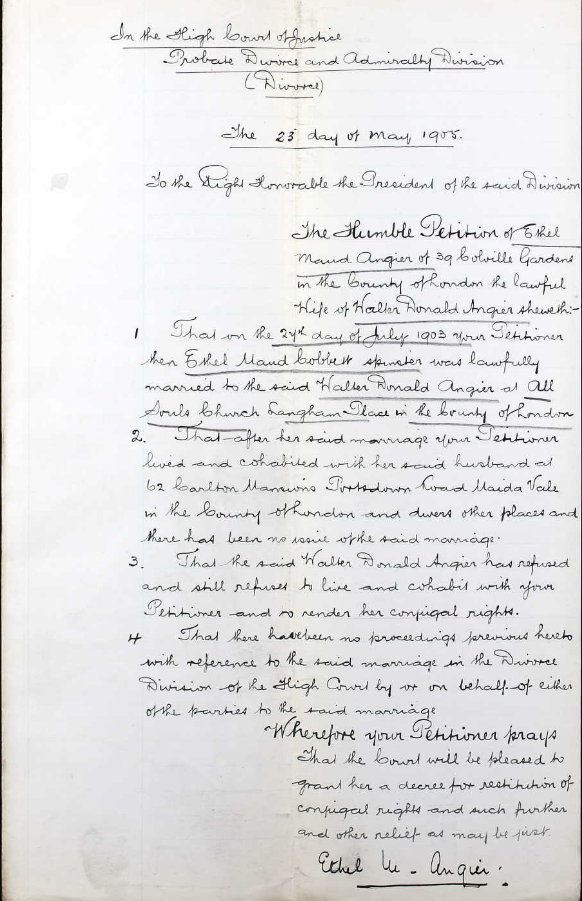 In the High Court of Justice
Probate Divorce and Admiralty Division
(Divorce)
The 23 day of May 1905.
To the Right Honorable the President of the said Division
The Humble Petition of Ethel
Maud Angier of 39 Colville Gardens
in the County of London the lawful
Wife of Walter Donald Angier sheweth:-
1 That on the 27th day of July 1903 your Petitioner
then Ethel Maud Cobbett spinster was lawfully
married to the said Walter Donald Angier at All
Souls Church Langham Place in the County of London
2. That after her said marriage your Petitioner
lived and cohabited with her said husband at
62 Carlton Mansions Portsdown Road Maida Vale
in the County of London and divers other places and
there has been no issue of the said marriage.
3. That the said Walter Donald Angier has refused
and still refuses to live and cohabit with your
Petitioner and to render her conjugal rights.
4 That there have been no proceedings previous hereto
with reference to the said marriage in the Divorce
Division of the High Court by or on behalf of either
of the parties to the said marriage
Wherefore your Petitioner prays
That the Court will be pleased to
grant her a decree for restitution of
conjugal rights and such further
and other relief as may be just.
Ethel M - Angier.